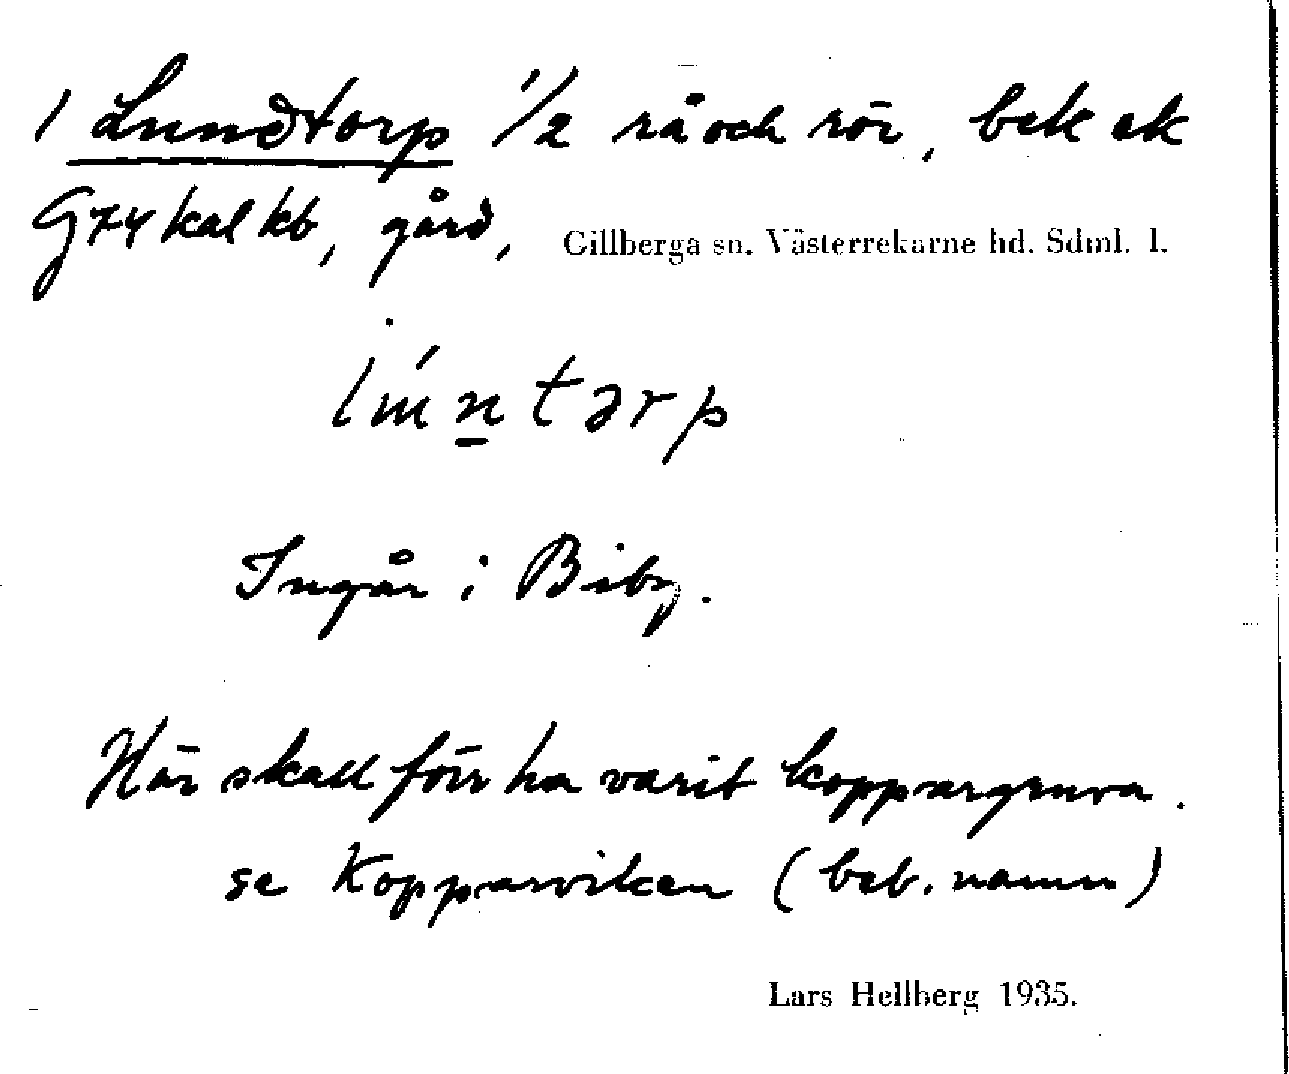 1 Lundtorp 1/2 rå och rör, bek ek
G74 kal kb, gård, Gillberga sn. Västerrekarne hd. Sdml. l.
Ingår i Biby.
Här skall förr ha varit koppargruva.
se Kopparviken (beb. namn)
Lars Hellberg 1935.